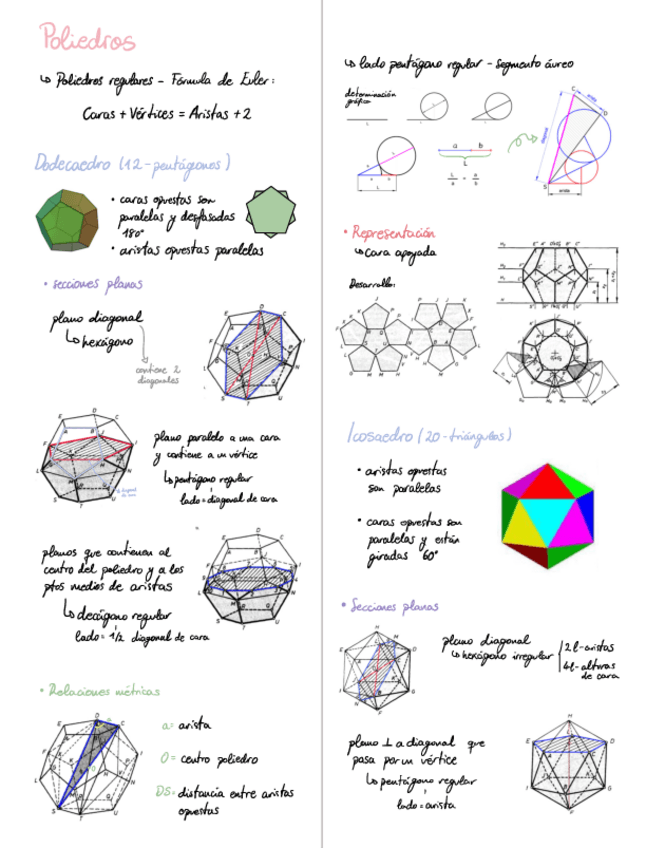 Poliedros
↳ Poliedros regulares - Fórmula de Euler:
Caras + Vértices = Aristas + 2
Dodecaedro (12 - pentágonos)
• caras opuestas son
paralelas y desfasadas
180°
• aristas opuestas paralelas
• secciones planas
plano diagonal
↳ hexágono
contiene 2
diagonales
plano paralelo a una cara
y contiene a un vértice
↳ pentágono regular
lado = diagonal de cara
planos que contienen al
centro del poliedro y a los
ptos medios de aristas
↳ decágono regular
lado = 1/2 diagonal de cara
• Relaciones métricas
a = arista
O = centro poliedro
DS = distancia entre aristas
opuestas
↳ lado pentágono regular - segmento áureo
determinación
gráfica
a b
L
L/a = a/b
diagonal
arista
• Representación
↳ cara apoyada
Desarrollo:
Icosaedro (20 - triángulos)
• aristas opuestas
son paralelas
• caras opuestas son
paralelas y están
giradas 60°
• Secciones planas
plano diagonal
↳ hexágono irregular
2l - aristas
4l - alturas
de cara
plano ⊥ a diagonal que
pasa por un vértice
↳ pentágono regular
lado = arista